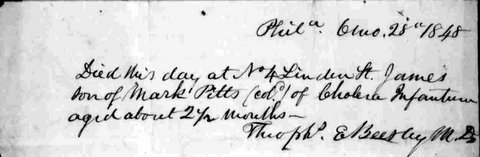 Philᵃ. 6mo. 28ᵗʰ 1848
Died this day at No 4 Linden St. James
son of Mark Pitts (cold.) of Cholera Infantum
aged about 2½ months—
Theophs. E Beesley M.D